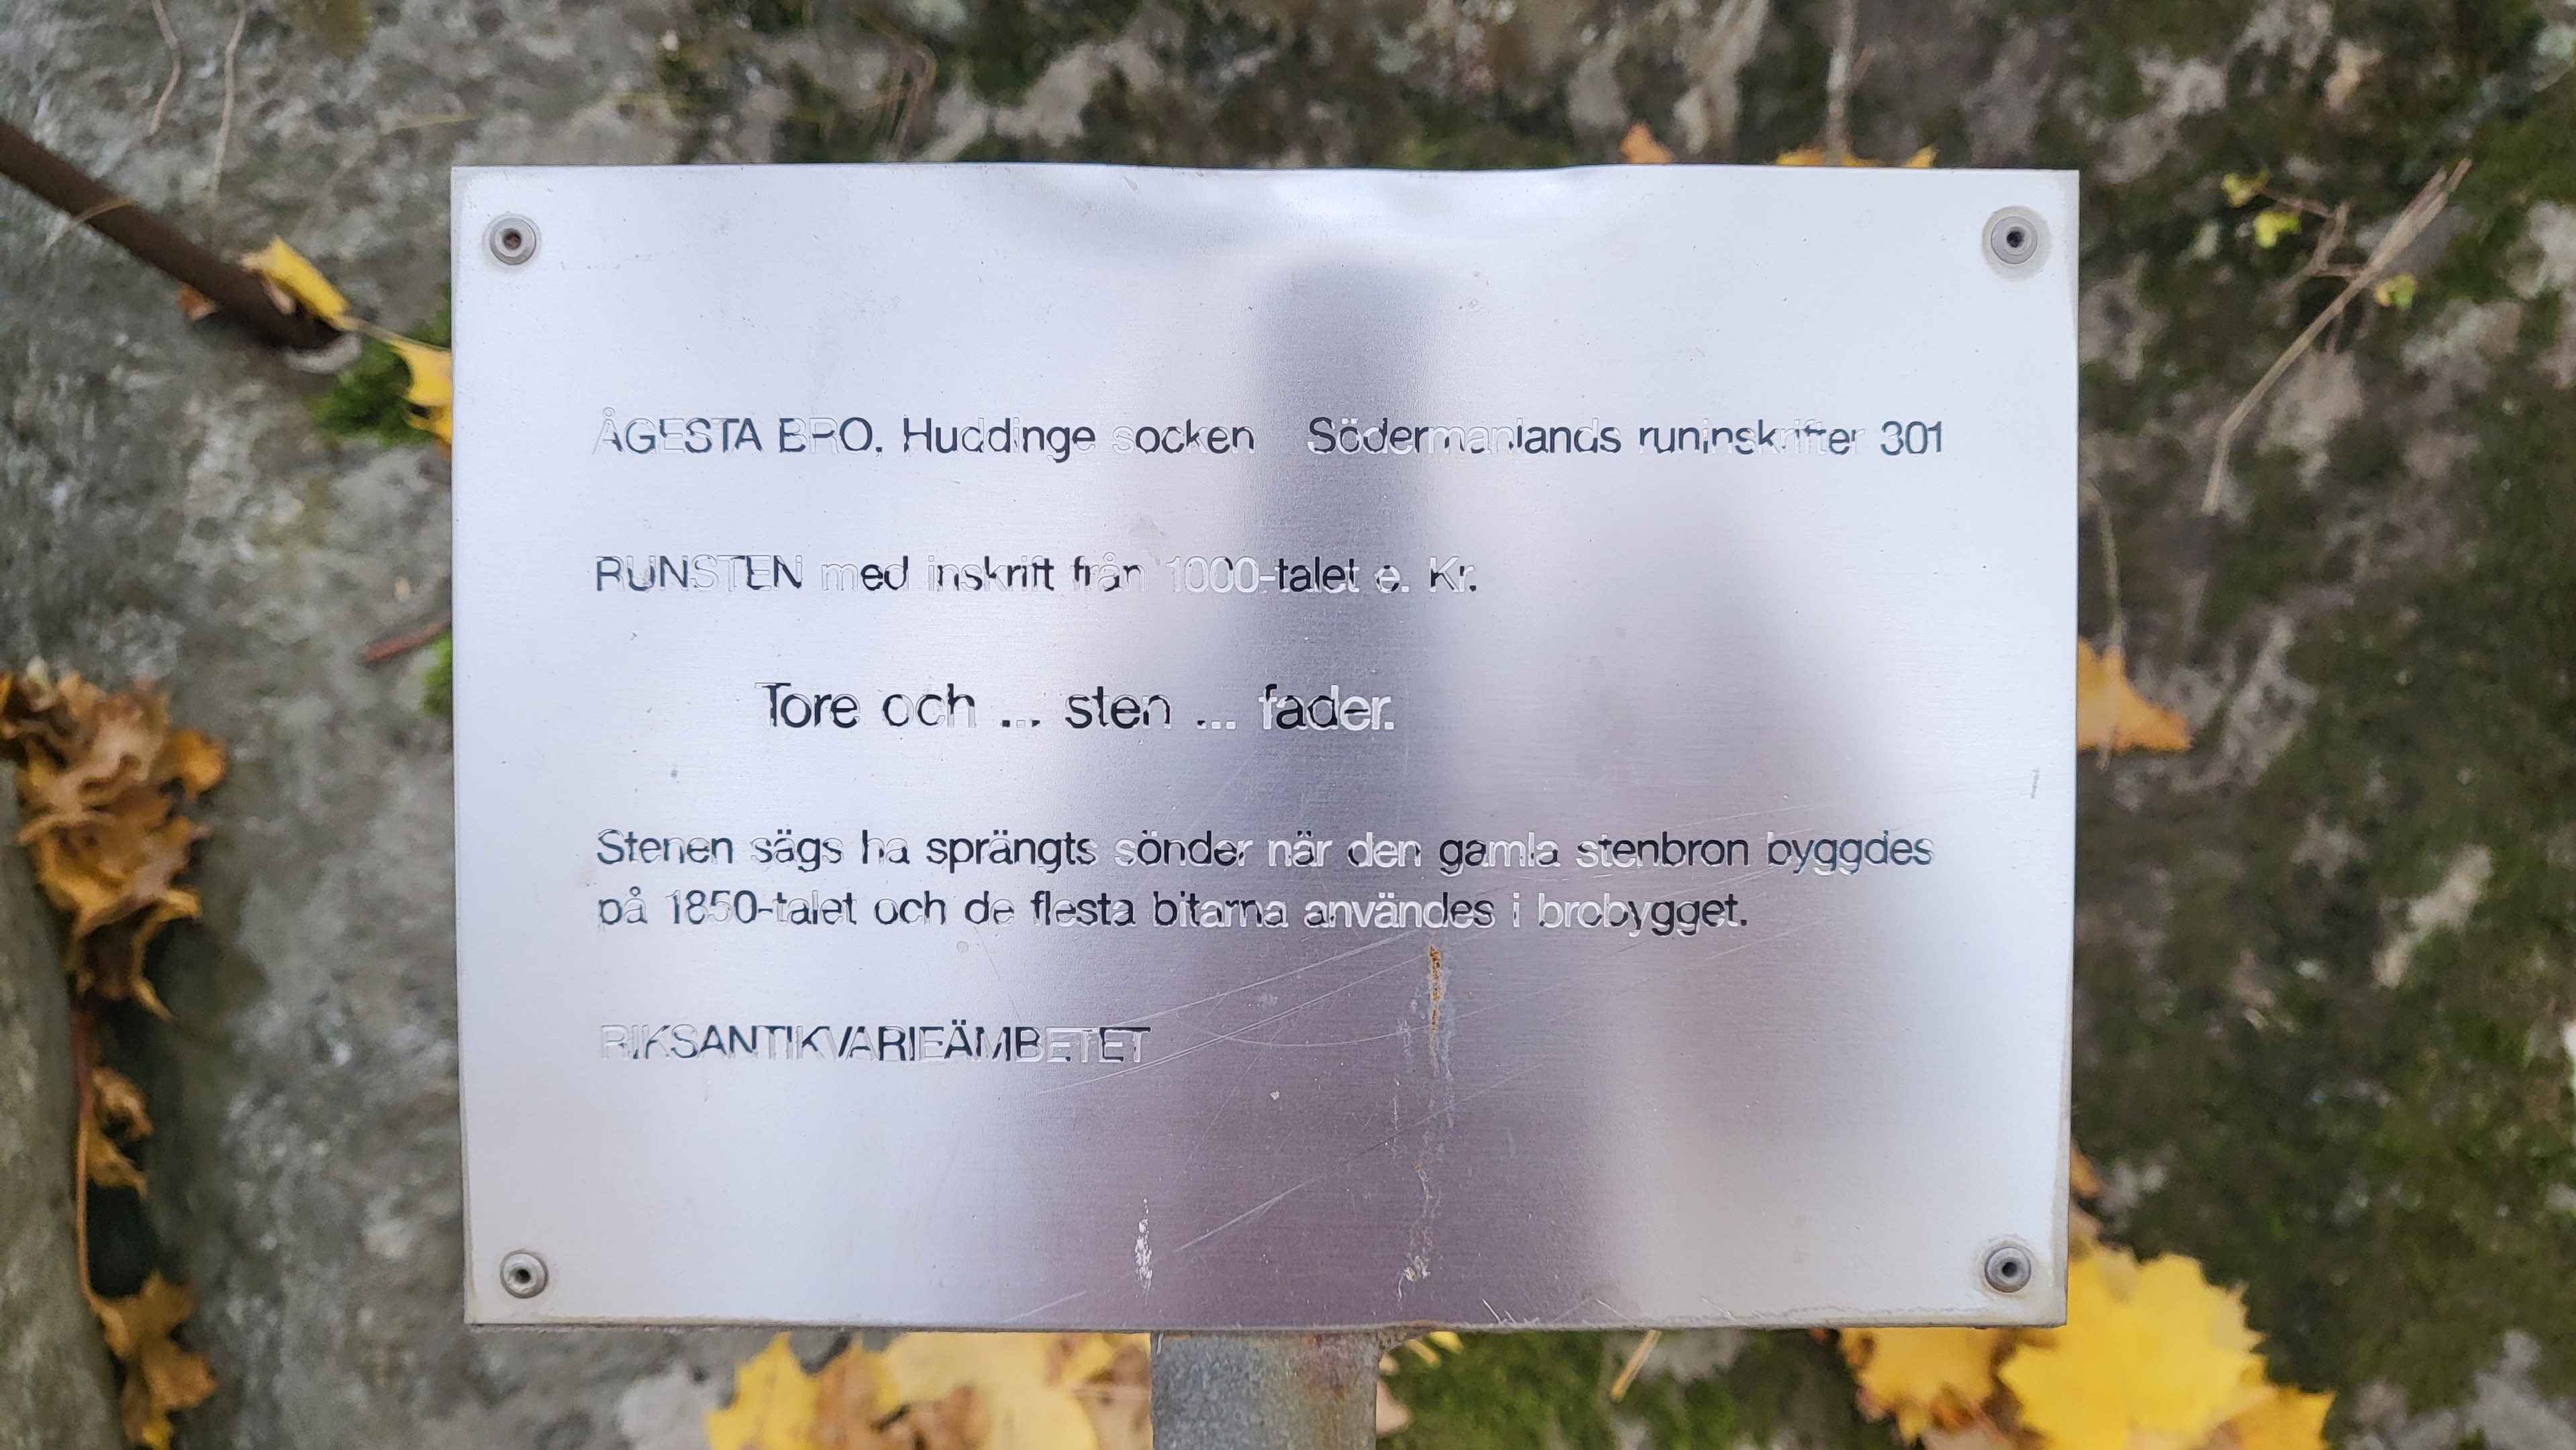 ÅGESTA BRO, Huddinge socken Södermanlands runinskrifter 301
RUNSTEN med inskrift från 1000-talet e. Kr.
Tore och ... sten ... fader.
Stenen sägs ha sprängts sönder när den gamla stenbron byggdes
på 1850-talet och de flesta bitarna användes i brobygget.
RIKSANTIKVARIEÄMBETET